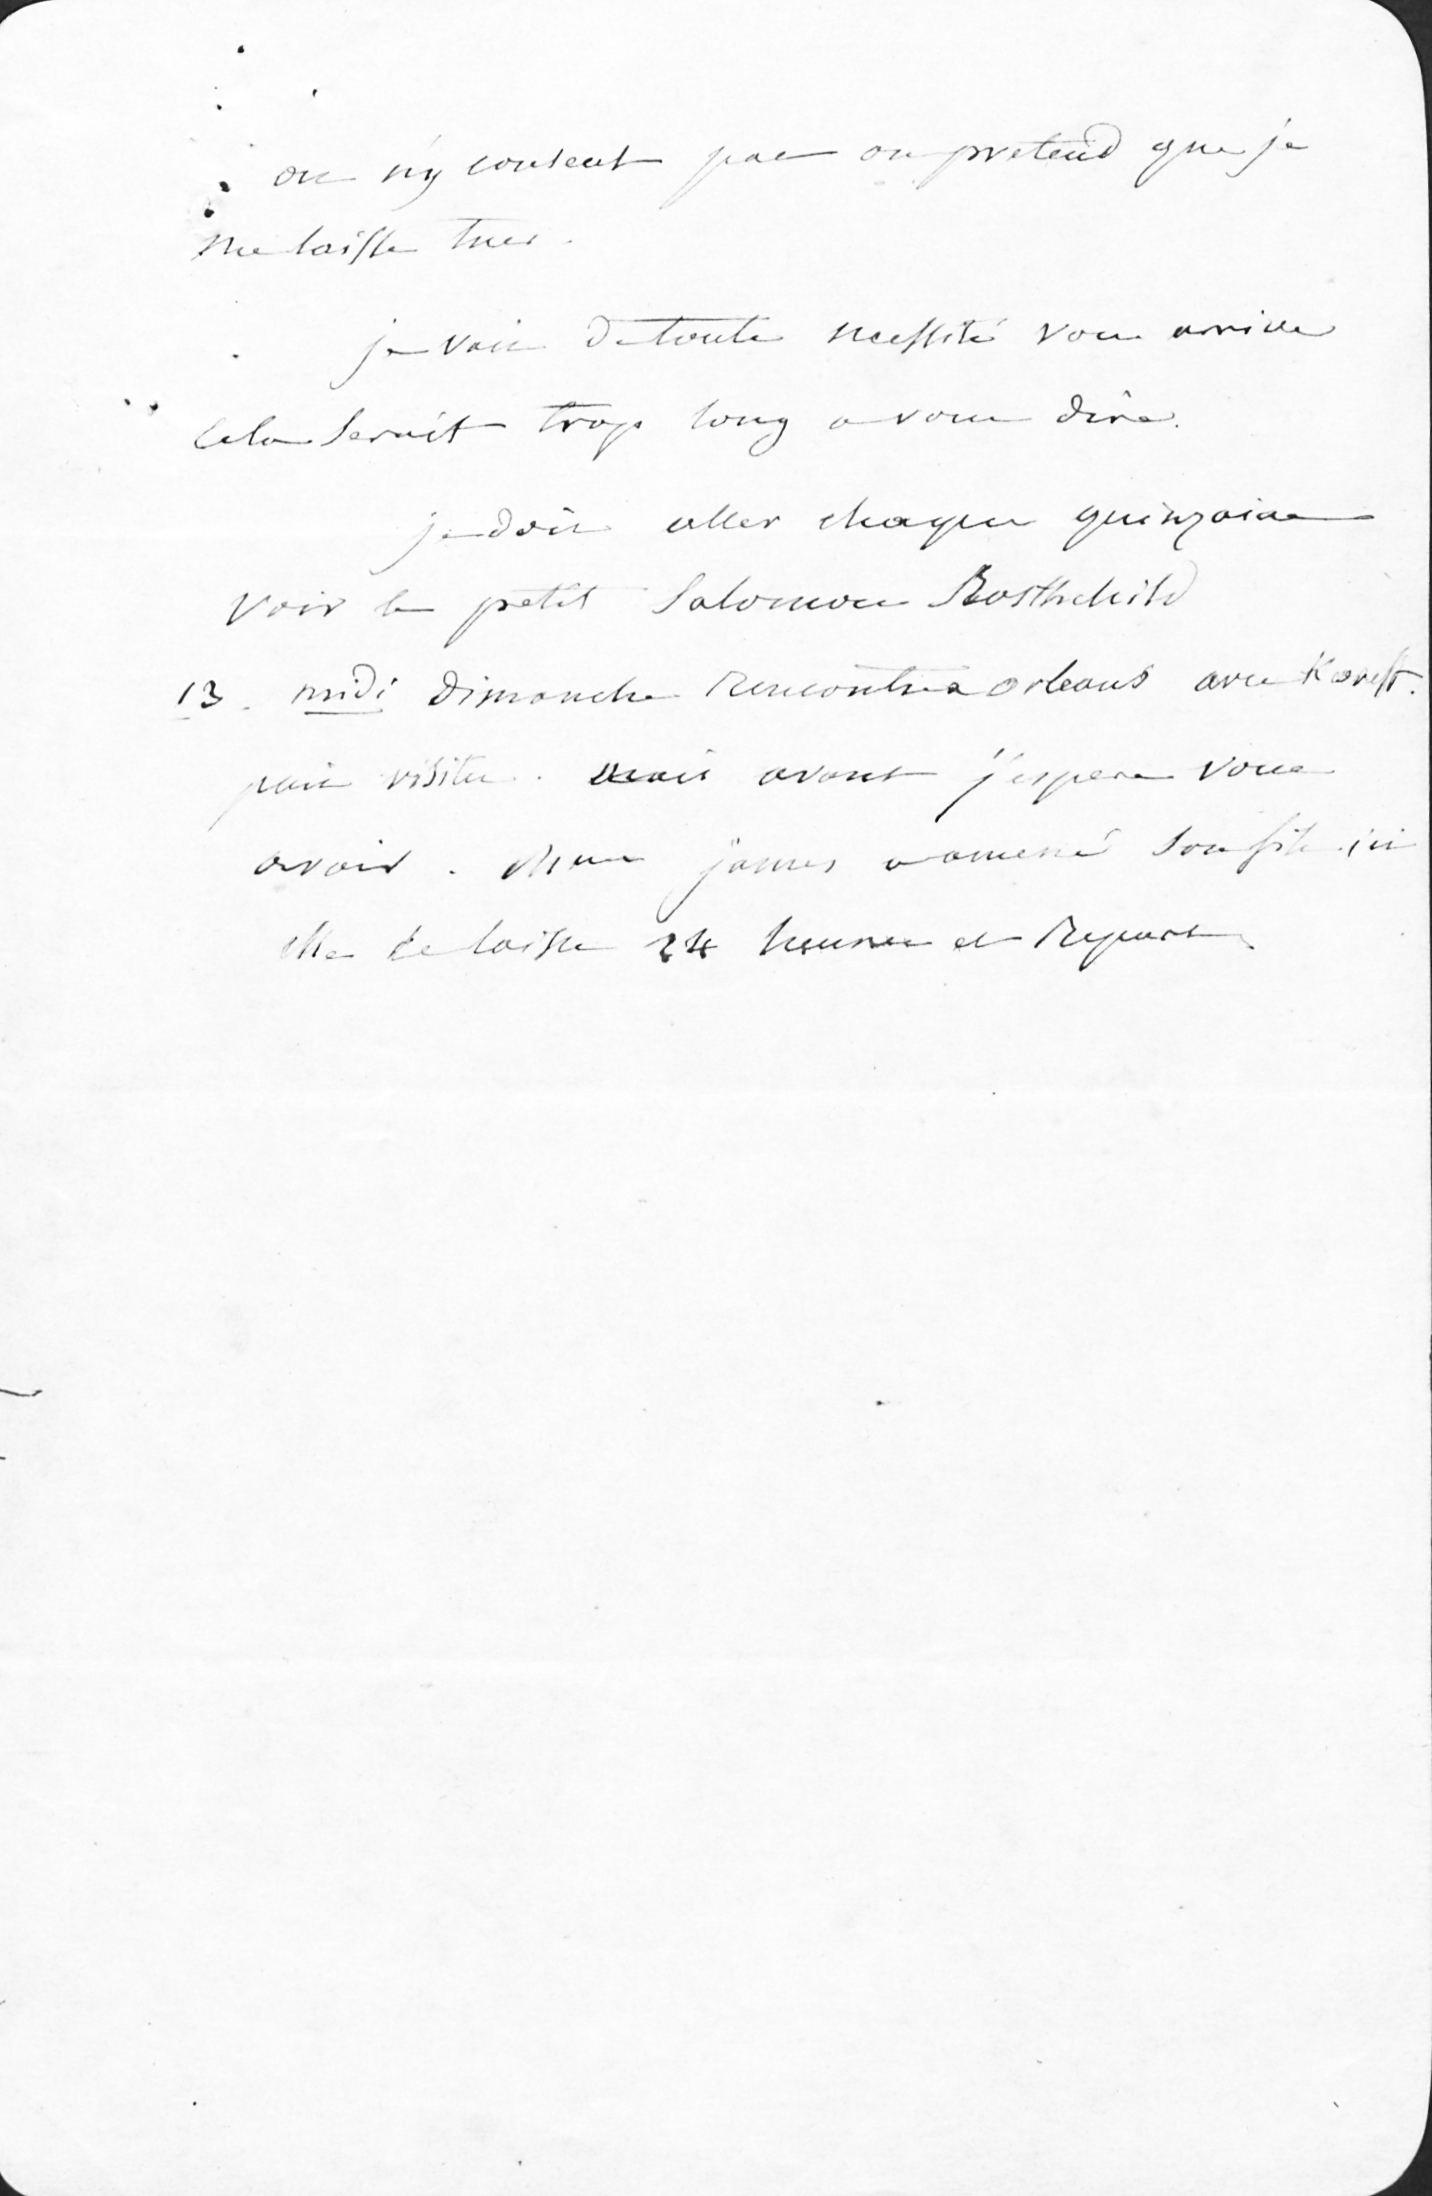 on n'y consent pas on pretend que je
me laisse tuer.
je vais de toute necessité vous arriver
Cela serait trop long a vous dire.
je dois aller chaque quinzaine
voir le petit Salomon Rosthchild
13. midi dimanche Rencontre a orleans avec Koreff.
puis visite. mais avant j'espere vous
avoir. Mme james a amené son fils ici
elle le laisse 24 heures et Repart